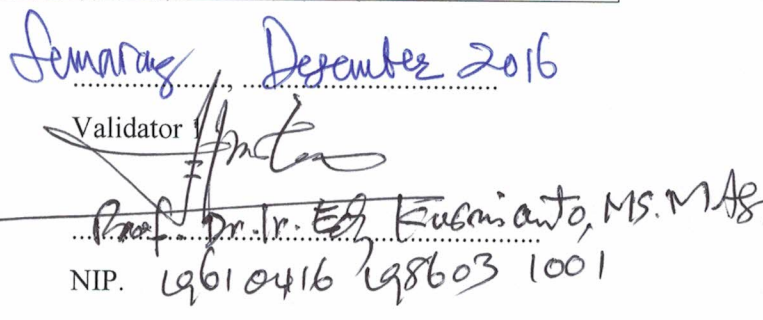 Semarang, Desember 2016
Validator 1
Prof. Dr. Ir. Edy Kusmianto, MS. M Ag
NIP. 19610416 198603 1001